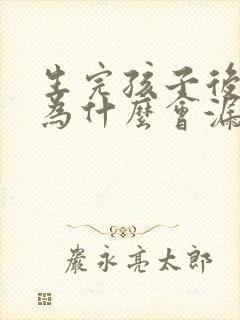 生完孩子後
為什麼會漏
嚴永亮太郎